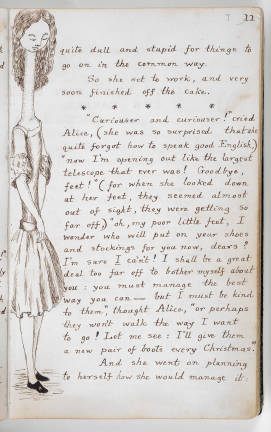 11
quite dull and stupid for things to
go on in the common way.
So she set to work, and very
soon finished off the cake.
* * * * * *
"Curiouser and curiouser!" cried
Alice, (she was so surprised that she
quite forgot how to speak good English,)
"now I'm opening out like the largest
telescope that ever was! Goodbye,
feet!" (for when she looked down
at her feet, they seemed almost
out of sight, they were getting so
far off,) "oh, my poor little feet, I
wonder who will put on your shoes
and stockings for you now, dears?
I'm sure I can't! I shall be a great
deal too far off to bother myself about
you: you must manage the best
way you can — but I must be kind
to them", thought Alice, "or perhaps
they won't walk the way I want
to go! Let me see: I'll give them
a new pair of boots every Christmas."
And she went on planning
to herself how she would manage it: